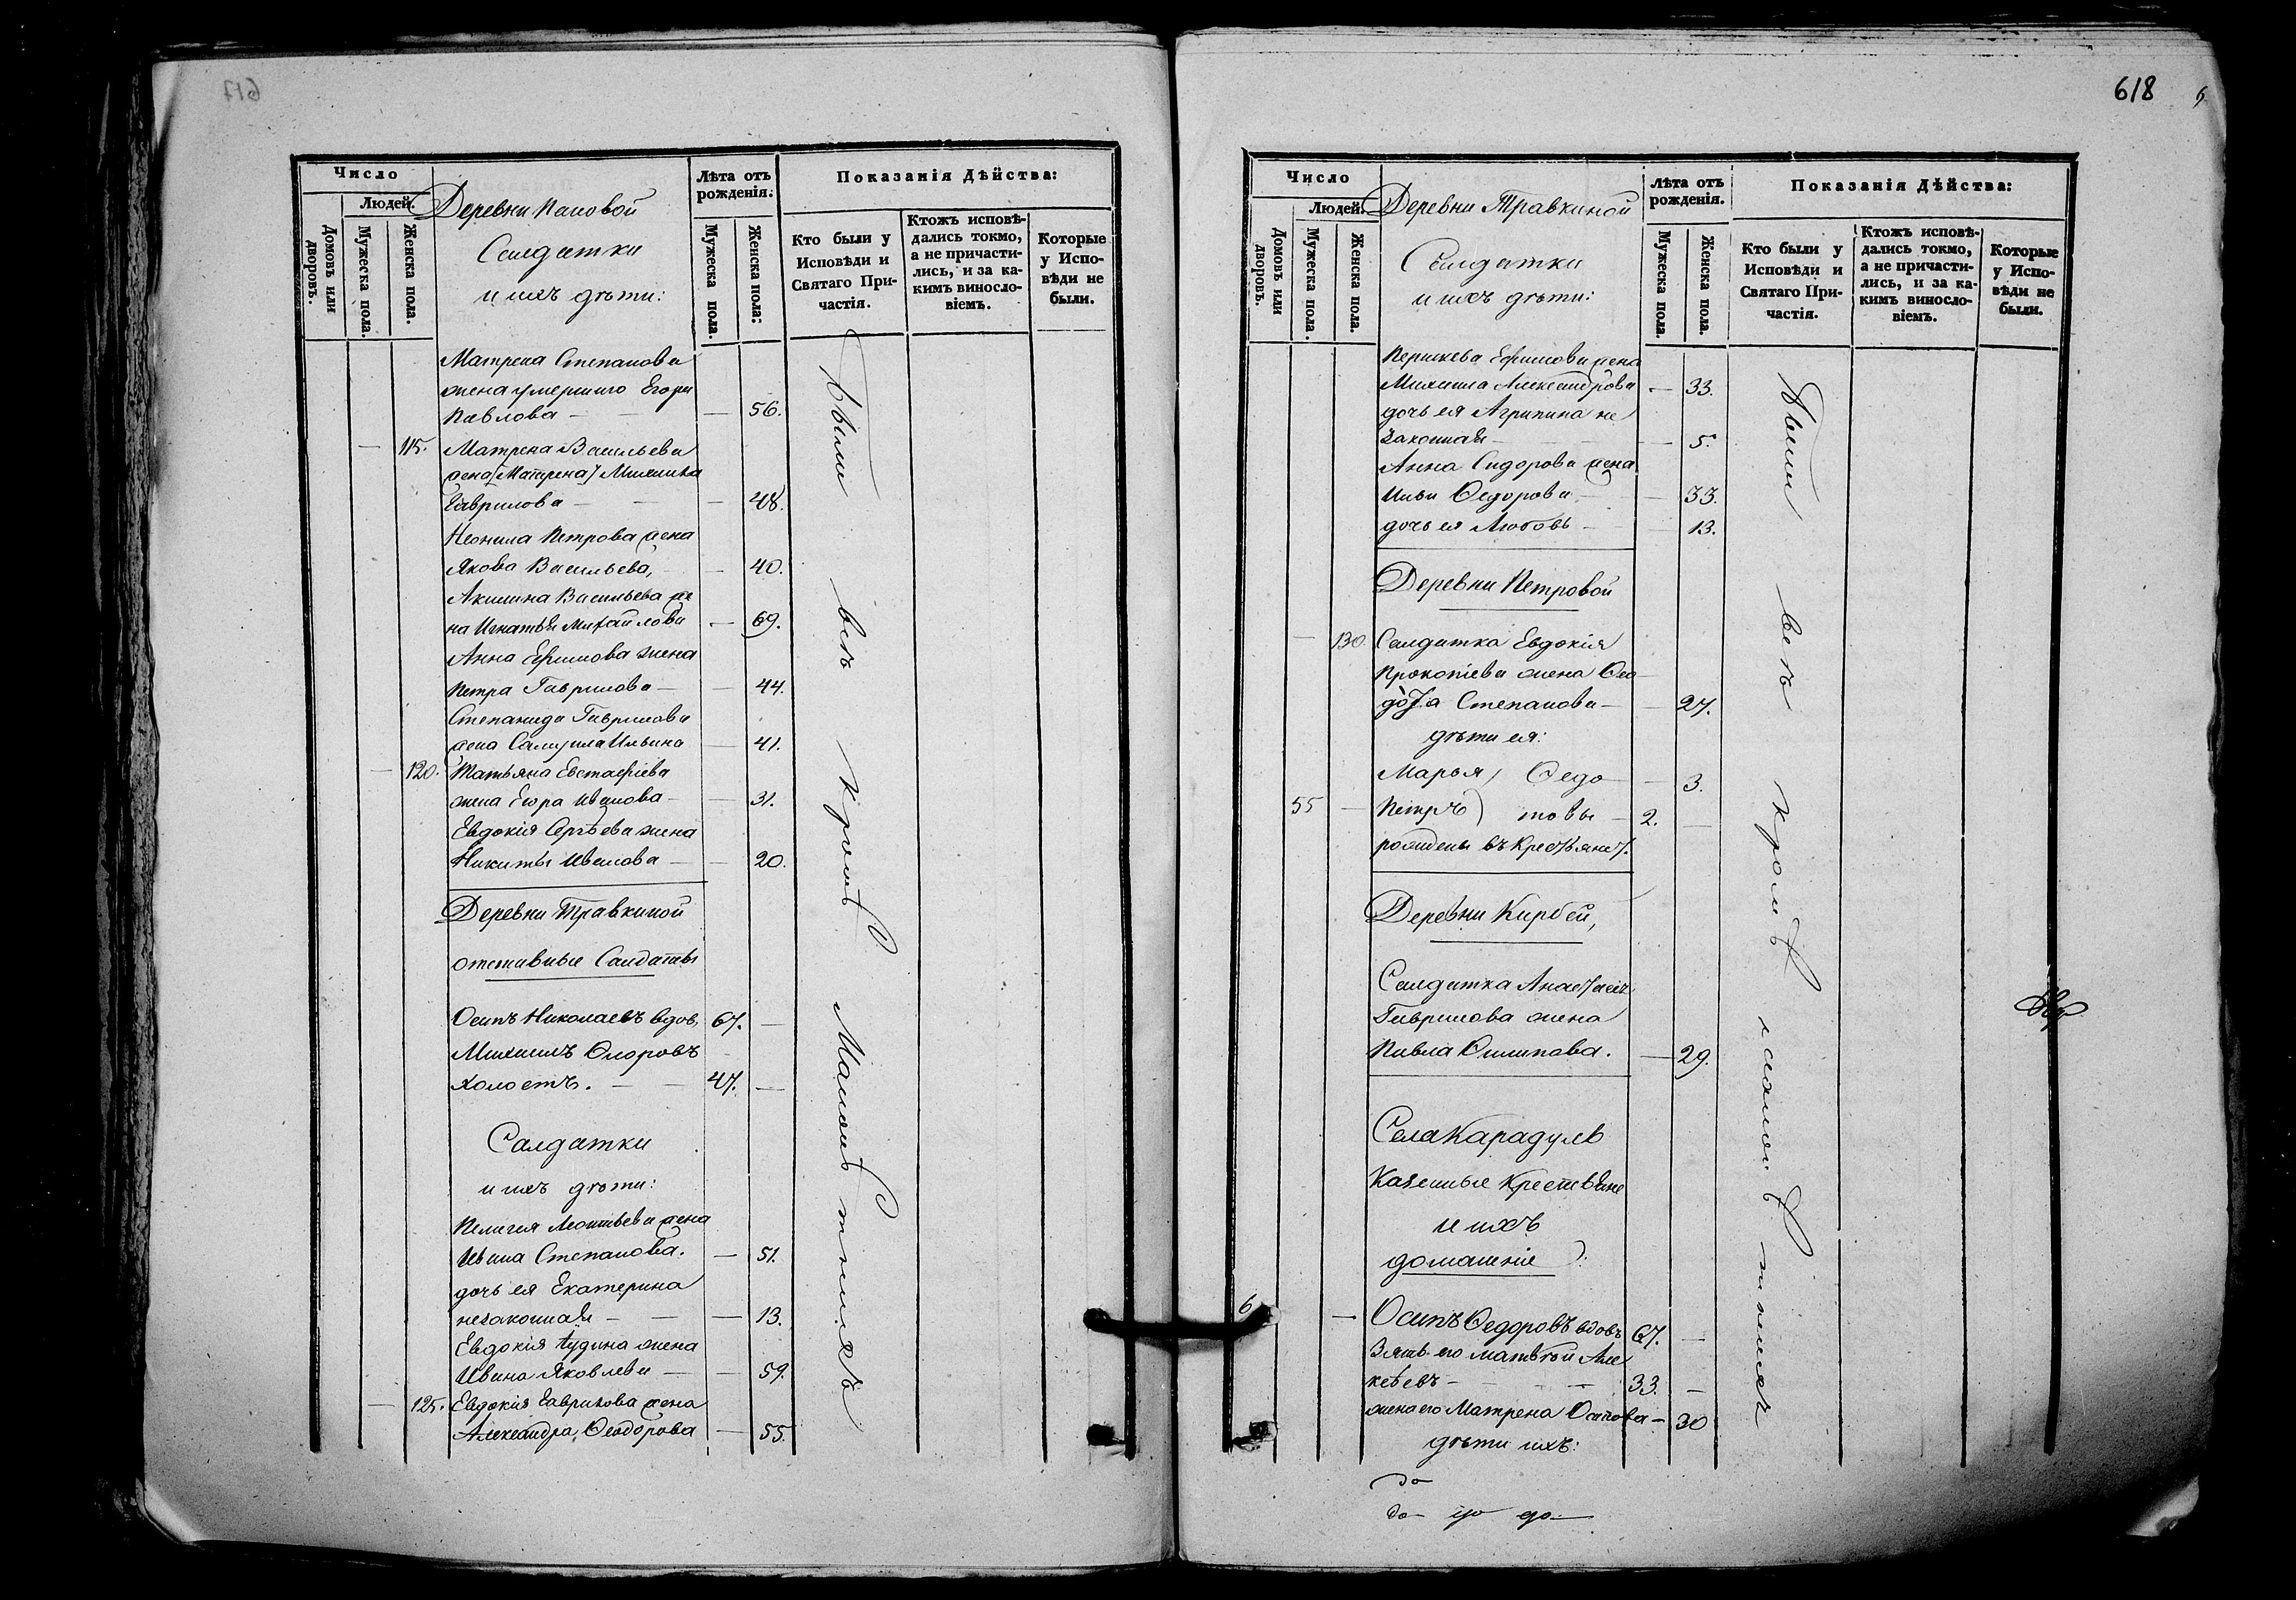 617
Число
Людей.
Домовъ или дворовъ.
Мужеска пола.
Женска пола.
Деревни Пановой
Салдатки
и ихъ дѣти:
Лѣта отъ рожденія.
Мужеска пола.
Женска пола:
Показанія Дѣйства:
Кто были у Исповѣди и Святаго Причастія.
Ктожъ исповѣдались токмо, а не причастились, и за какимъ винословіемъ.
Которые у Исповѣди не были.
Матрена Степанова
жена умершаго Егора
Павлова — 56.
— 115. Матрена Васильева
жена [Матрена] Михаила
Гаврилова — 48.
Неонила Петрова жена
Якова Васильева, — 40.
Акилина Васильева же
на Игнатья Михайлова — 69.
Анна Ефимова жена
Петра Гаврилова — 44.
Степанида Гаврилова
жена Самуила Ильина — 41.
— 120. Татьяна Евстафіева
жена Егора Иванова — 31.
Евдокія Сергѣева жена
Никиты Иванова — 20.
Деревни Травкиной
отставные Салдаты
Осипъ Николаевъ вдов, 67. —
Михаилъ Ѳедоровъ
холостъ. — 47. —
Салдатки
и ихъ дѣти:
Пелагея Леонтьева жена
Ивана Степанова. — 51.
дочь ея Екатерина
незаконная — 13.
Евдокія жена
Ивана Яковлева — 59.
— 125. Евдокія Гаврилова жена
Александра Ѳеодорова — 55.
Были всѣ кромѣ малолѣтнихъ
618
Число
Людей.
Домовъ или дворовъ.
Мужеска пола.
Женска пола.
Деревни Травкиной
Салдатки
и ихъ дѣти:
Лѣта отъ рожденія.
Мужеска пола.
Женска пола.
Показанія Дѣйства:
Кто были у Исповѣди и Святаго Причастія.
Ктожъ исповѣдались токмо, а не причастились, и за какимъ винословіемъ.
Которые у Исповѣди не были.
Ефимова жена
Михаила Александрова — 33.
дочь ея Агрипина не
законная — 5.
Анна Сидорова жена
Ильи Ѳедорова — 33.
дочь ея Любовь — 13.
Деревни Петровой
— 130 Салдатка Евдокія
Прокопіева жена Ѳео
дота Степанова — 27.
дѣти ея:
Марья) Ѳедо — 3.
55 — Петръ) товы — 2. —
рождены въ крестьянст.
Деревни Кирбей,
Салдатка Анастасія
Гаврилова жена
Павла Филипова. — 29.
Села Карадулъ
Казенные Крестьяне
и ихъ
домашніе:
6 — Осипъ Ѳедоровъ вдовъ 67. —
Зять его Матвѣй Але
ксѣевъ — 33. —
жена его Матрена Осипова — 30
дѣти ихъ:
до
до до до
Были всѣ кромѣ малолѣтнихъ